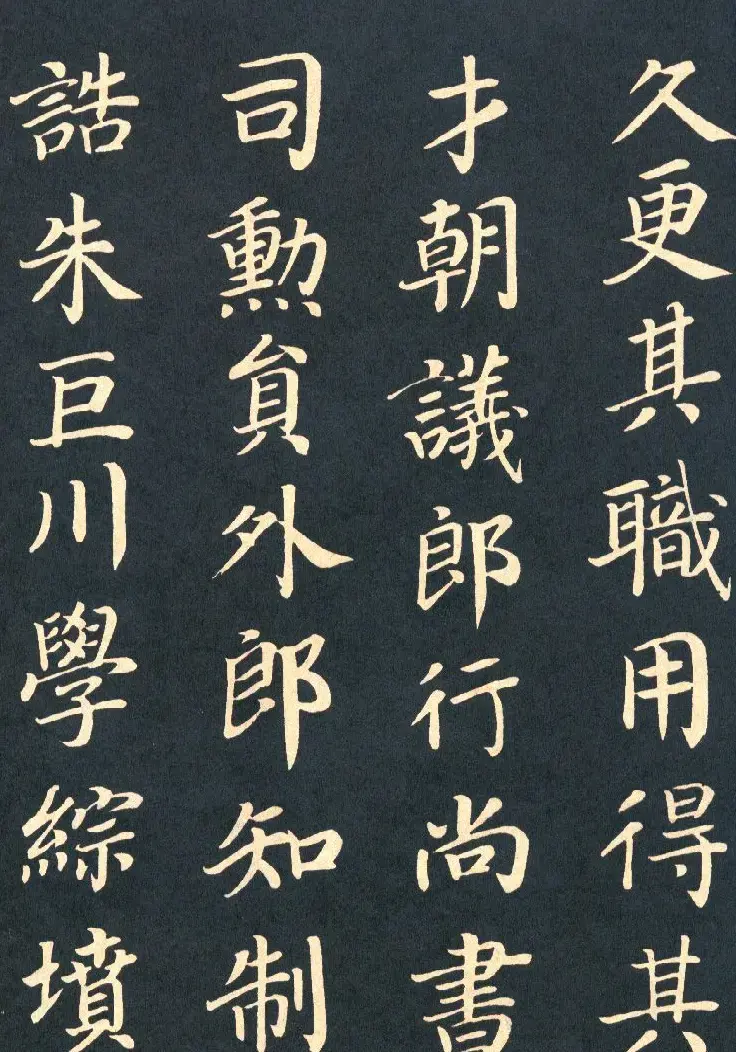 久更其職用得其
才朝議郎行尚書
司勳貟外郎知制
誥朱巨川學綜墳